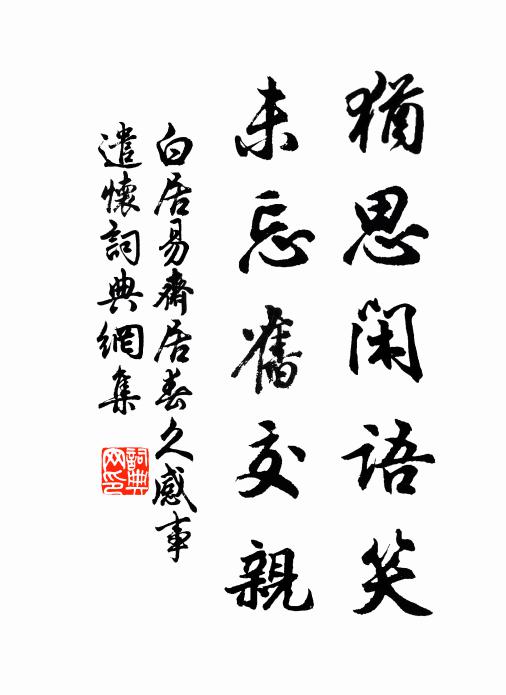 猶思閑語笑
未忘舊交親
白居易齋居春久感事
遣懷詞典網集
詞典
网印